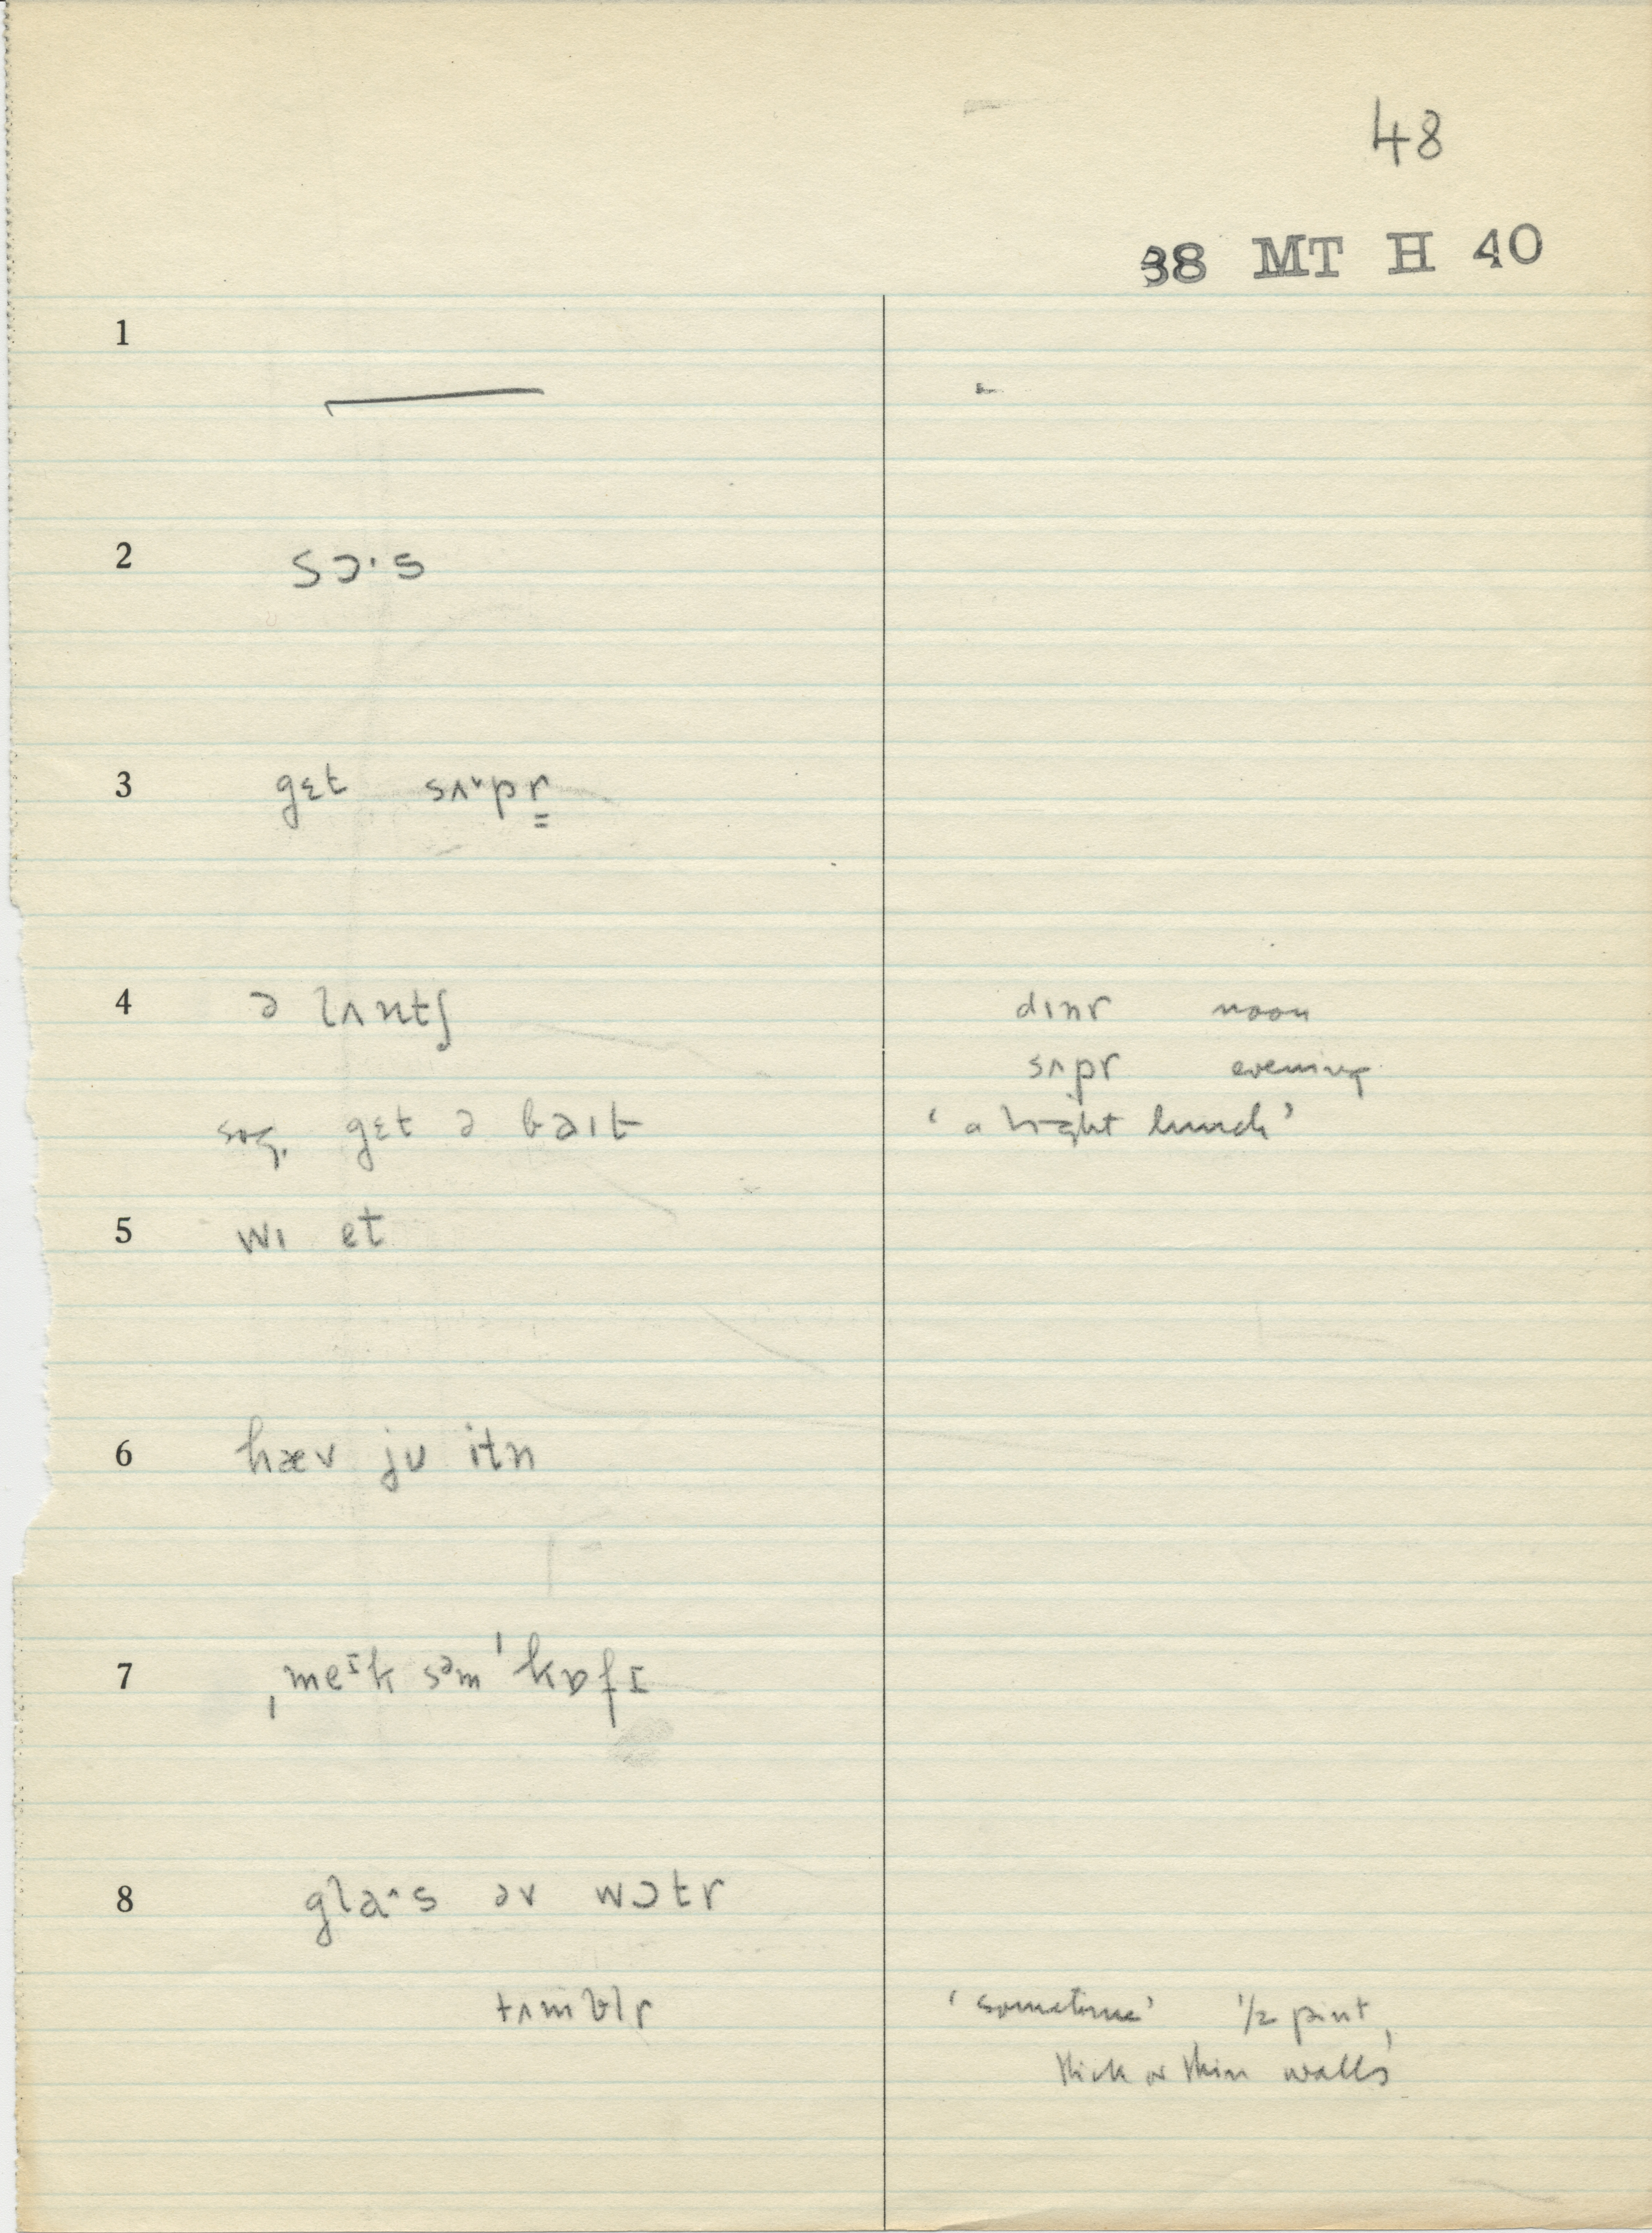 48
38 MT H 40
1
—
2 sɔ·s
3 gɛt sʌ˅pr̳
4 ə lʌntʃ dɪnr noon
sʌpr evening
sug. gɛt ə baɪt ‘a light lunch’
5 wɪ et
6 hæv jʊ itn
7 ˌmeᶦk səm ˈkɒfɪ
8 gla˄s əv wɔtr
tʌmblr ‘sometime’ ½ pint,
thick or thin walls